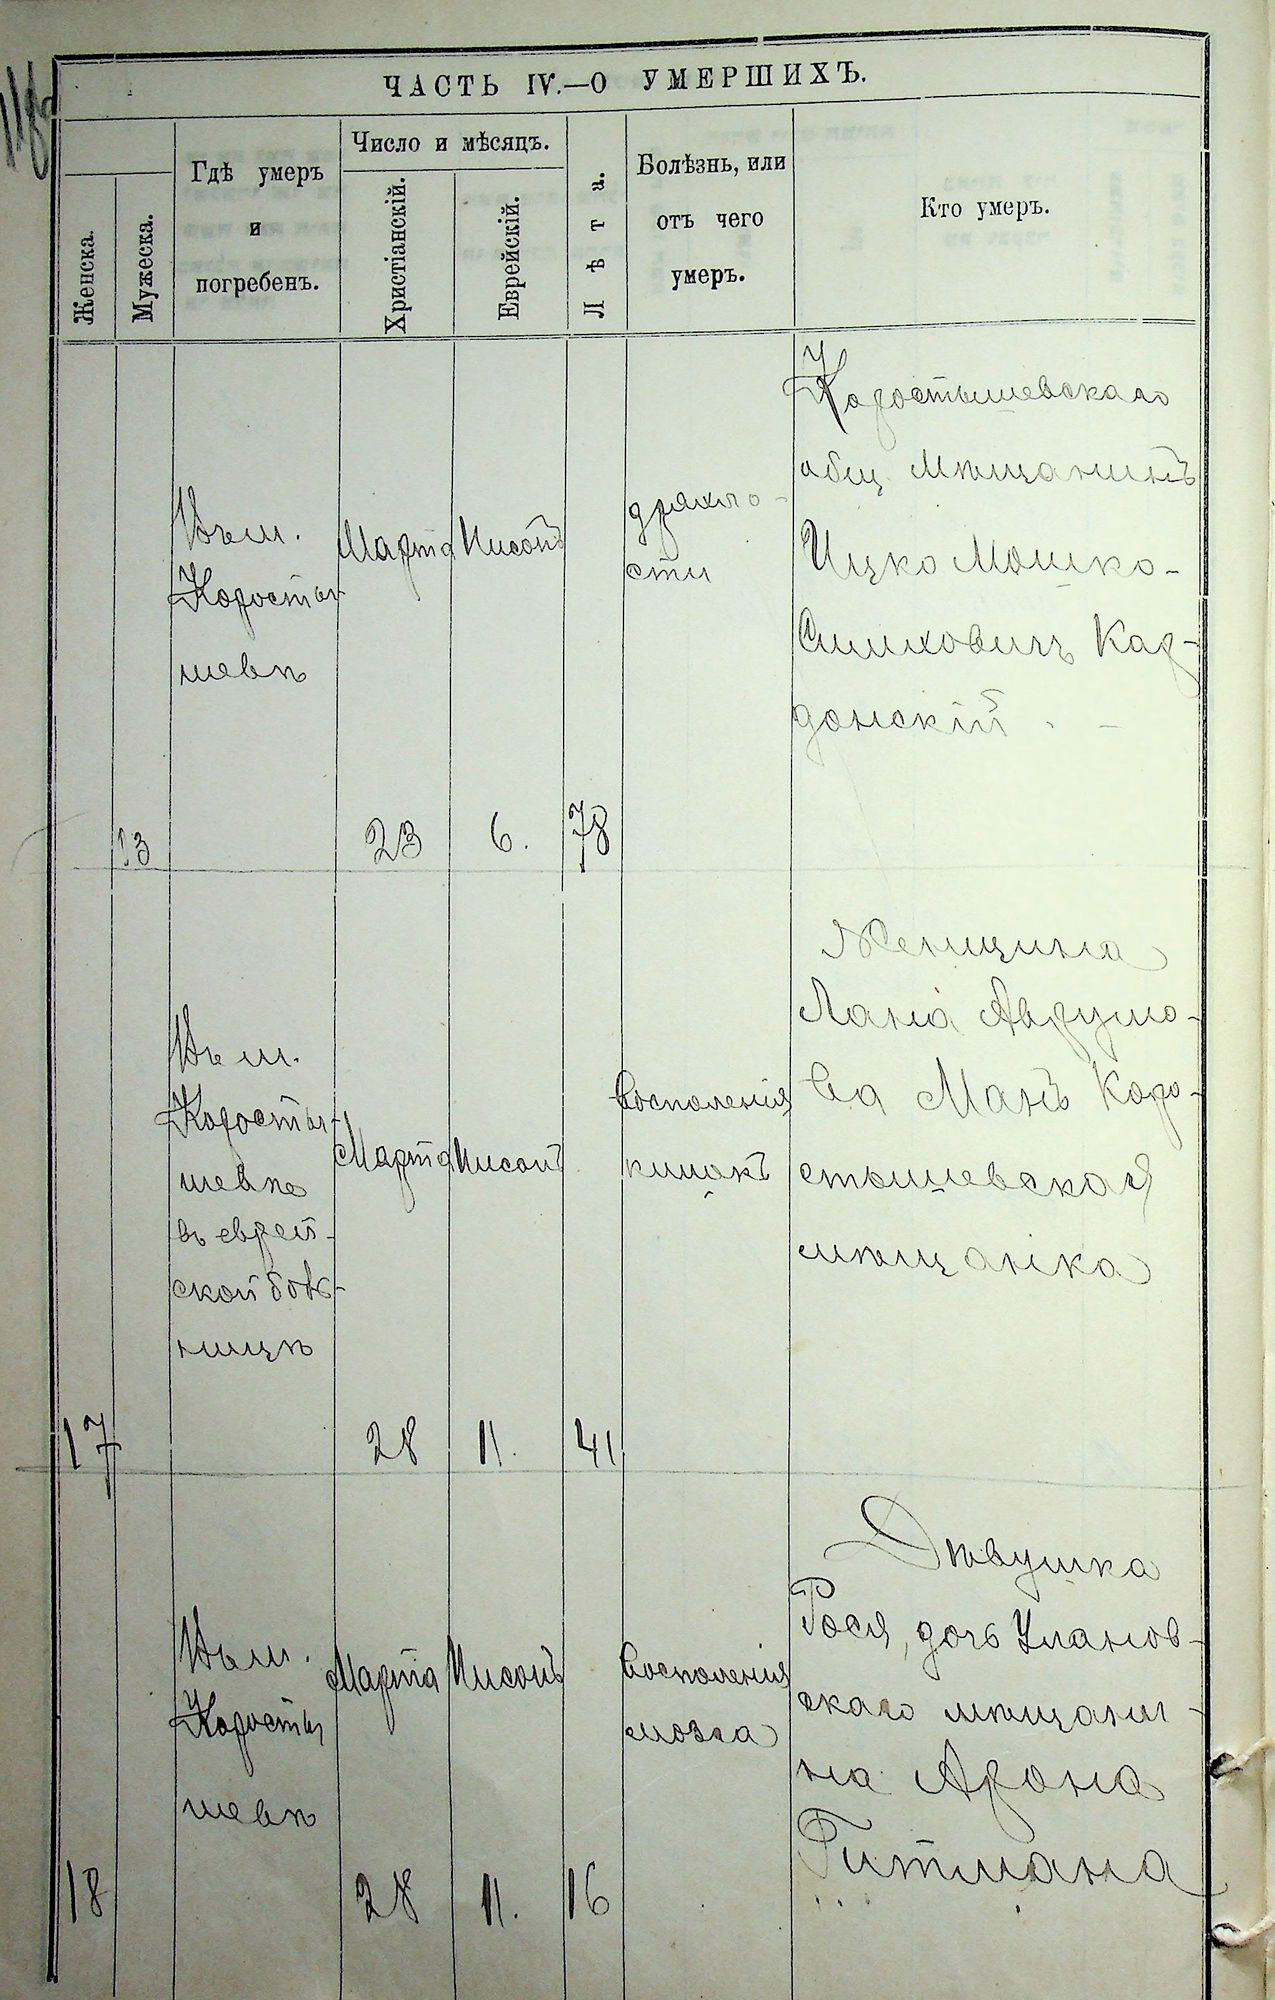 ЧАСТЬ IV.—О УМЕРШИХЪ.
Женска.
Мужеска.
Гдѣ умеръ
и
погребенъ.
Число и мѣсяцъ.
Христіанскій.
Еврейскій.
Лѣта.
Болѣзнь, или
отъ чего
умеръ.
Кто умеръ.
13
Въ м.
Коросты-
шевѣ
Марта
23
Нисонъ
6.
78
дряхло-
сти
Коростышевскаго
общ. мѣщанинъ
Ицко Мошко-
Симховичъ
донскій
17
Въ м.
Коросты-
шевѣ
въ еврей-
ской боль-
ницѣ
Марта
28
Нисонъ
11.
41
Воспаленія
кишокъ
Женщина
Лана Аврумо-
ва Манъ Коро-
стышевская
мѣщанка
18
Въ м.
Коросты
шевѣ
Марта
28
Нисонъ
11.
16
Воспаленія
мозга
Дѣвушка
Рося, дочь Уланов-
скаго мѣщани-
на Арона
Гитмана